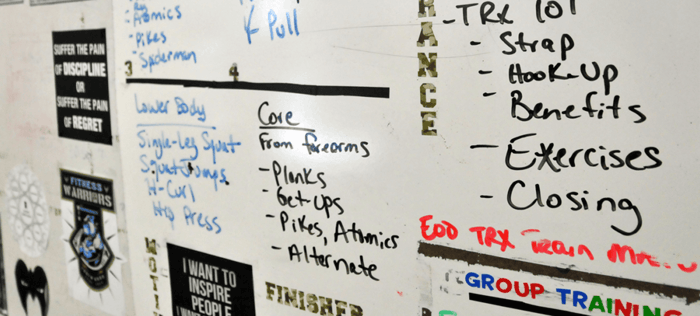 Atomics
- Pikes
- Spiderman
Pull
SUFFER THE PAIN
OF DISCIPLINE
OR
SUFFER THE PAIN
OF REGRET
3
4
Lower Body
Single-Leg Squat
Squat Jumps
H-Curl
Hip Press
Core
From forearms
- Planks
- Get-Ups
- Pikes, Atomics
- Alternate
FITNESS
WARRIORS
I WANT TO
INSPIRE
PEOPLE
FINISHER
ANCE
- TRX 101
- Strap
- Hook-Up
- Benefits
- Exercises
- Closing
EOD TRX Train
GROUP TRAINING